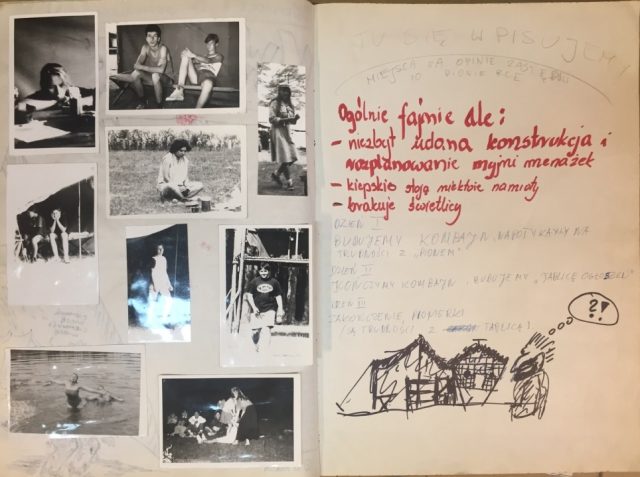 TU SIĘ WPISUJEMY
MIEJSCE NA OPINIE
Ogólnie fajnie ale:
- niezbyt udana konstrukcja i
rozplanowanie myjni menażek
- kiepskie stoją niektóre namioty
- brakuje świetlicy
DZIEŃ I
BUDUJEMY KOMBAJN, NAPOTYKAMY NA
TRUDNOŚCI Z „
DZIEŃ II
KOŃCZYMY KOMBAJN, BUDUJEMY „TABLICĘ OGŁOSZEŃ"
DZIEŃ III
ZAKOŃCZENIE PIONIERKI
(SĄ TRUDNOŚCI Z TABLICĄ)
?!